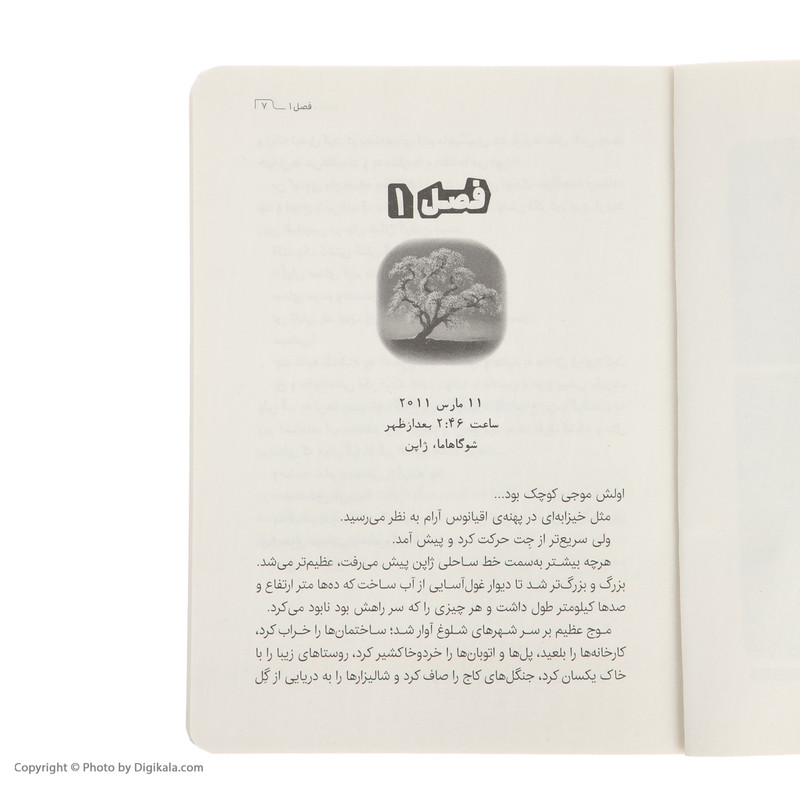 فصل ۱ ۷
فصل ۱
۱۱ مارس ۲۰۱۱
ساعت ۲:۴۶ بعدازظهر
شوگاهاما، ژاپن
اولش موجی کوچک بود...
مثل خیزابه‌ای در پهنه‌ی اقیانوس آرام به نظر می‌رسید.
ولی سریع‌تر از جِت حرکت کرد و پیش آمد.
هرچه بیشتر به‌سمت خط ساحلی ژاپن پیش می‌رفت، عظیم‌تر می‌شد.
بزرگ و بزرگ‌تر شد تا دیوار غول‌آسایی از آب ساخت که ده‌ها متر ارتفاع و
صدها کیلومتر طول داشت و هر چیزی را که سر راهش بود نابود می‌کرد.
موج عظیم بر سر شهرهای شلوغ آوار شد؛ ساختمان‌ها را خراب کرد،
کارخانه‌ها را بلعید، پل‌ها و اتوبان‌ها را خردوخاکشیر کرد، روستاهای زیبا را با
خاک یکسان کرد، جنگل‌های کاج را صاف کرد و شالیزارها را به دریایی از گِل
Copyright © Photo by Digikala.com